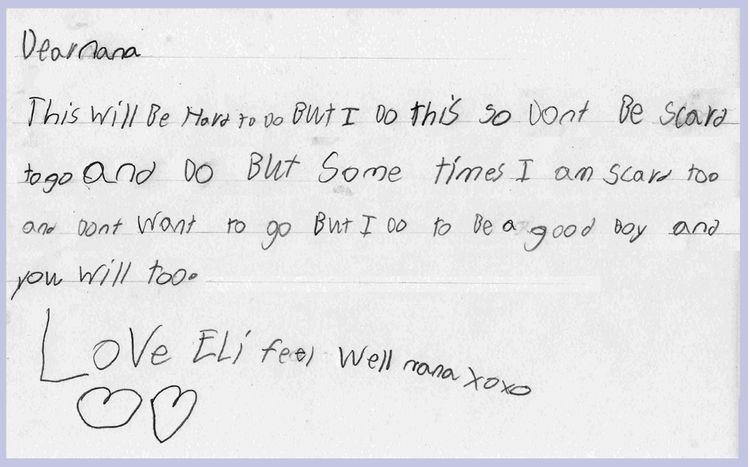 Dear nana
This Will Be Hard to Do But I Do this so Dont Be Scard
to go and Do But Some times I am Scard too
and Dont Want to go But I Do to Be a good boy and
you will too.
Love Eli feel Well nana xoxo